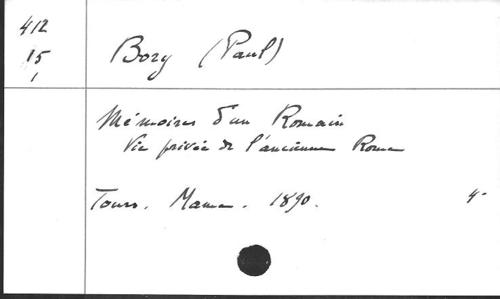 412
15
1
Bory (Paul)
Mémoires d'un Romain
Vie privée de l'ancienne Rome
Tours. Mame. 1890. 4-